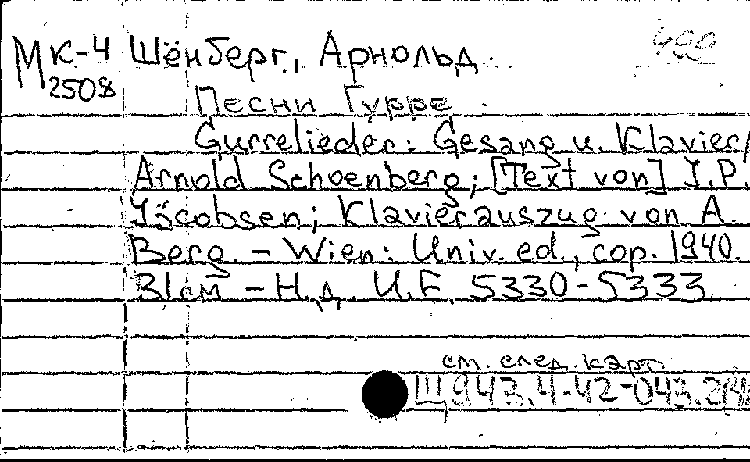 МК-4 Шёнберг, Арнольд
2508
Песни Гурре
Gurrelieder: Gesang u. Klavier/
Arnold Schoenberg; [Text von] I.P.
Jacobsen; Klavierauszug von A.
Berg. – Wien: Univ. ed., cop. 1940.
31см – Н.д. U.E. 5330-5333
см. след. карт.
Щ943.4-42-043.2